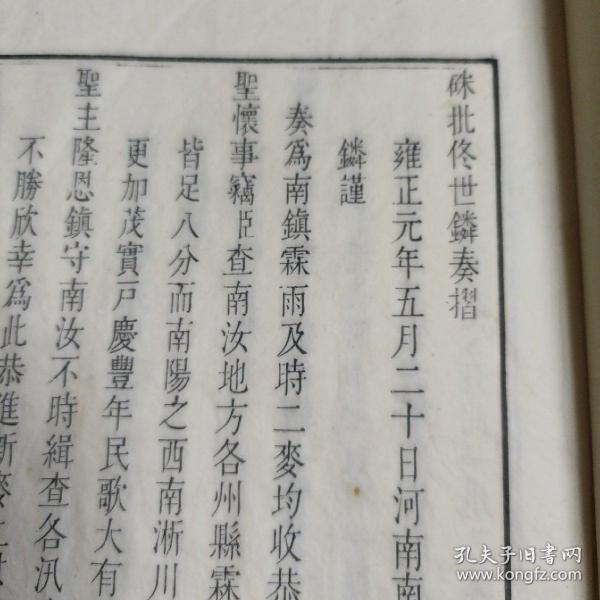 硃批佟世鏻奏摺
雍正元年五月二十日河南南
鏻謹
奏為南鎮霖雨及時二麥均收恭
聖懷事竊臣查南汝地方各州縣霖
皆足八分而南陽之西南淅川
更加茂實戶慶豐年民歌大有
聖主隆恩鎮守南汝不時緝查各汛
不勝欣幸為此恭進新麥
孔夫子旧书网
www.kongfz.com